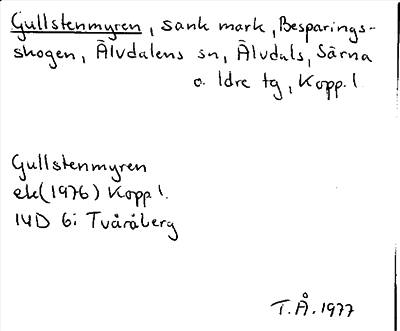 Gullstenmyren, sank mark, Besparings-
skogen, Älvdalens sn, Älvdals, Särna
o. Idre tg, Kopp. l
Gullstenmyren
ek(1976) Kopp l.
14D 6i Tvåråberg
T.Å. 1977